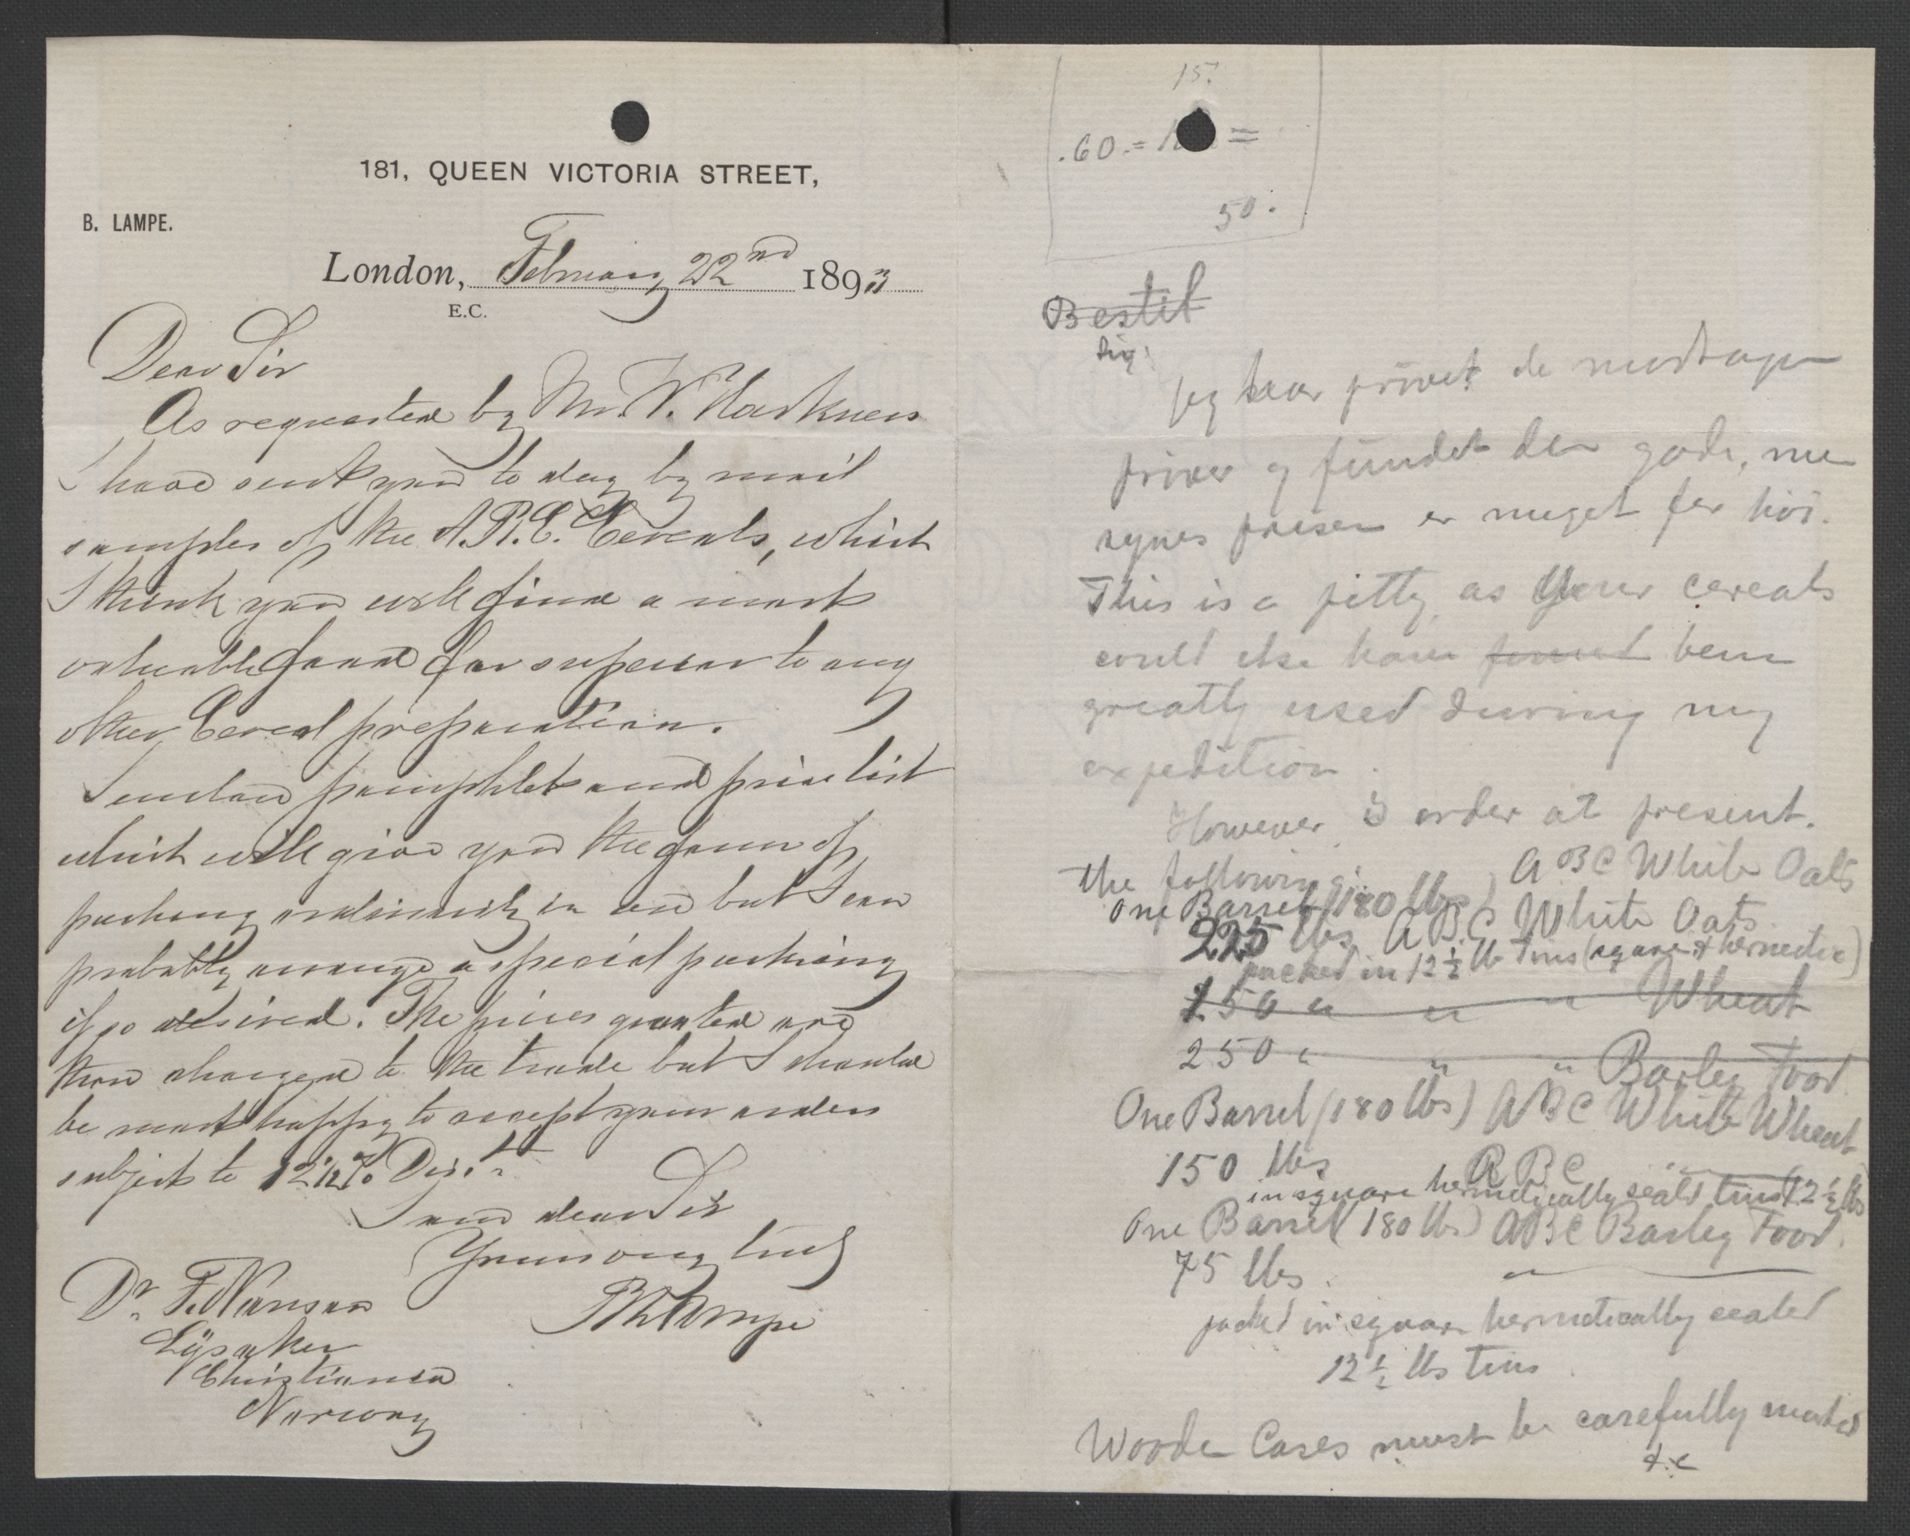 181, QUEEN VICTORIA STREET,
B. LAMPE.
London, February 22nd 1893
E.C.
Dear Sir
As requested by Mr. W. Harkness
I have sent you to day by mail
samples of the A.B.C. Cereals, which
I think you will find a most
valuable food far superior to any
other Cereal preparation.
I enclose pamphlet and price list
which will give you the form of
packing ordinarily in use but I can
probably arrange a special packing
if so desired. The prices quoted are
those charged to the trade but I should
be most happy to accept your orders
subject to 12 1/2 % Disct.
I am dear Sir
Yours very truly
B Lampe
Dr. F. Nansen
Lysaker
Christiania
Norway
15.
.60.=
=
50.
Bestil
Sir,
Jeg har prøvet de modtagne
prøver og fundet den gode, men
synes prisen er meget før høi.
This is a pitty, as Your cereals
could else have found been
greatly used during my
expedition.
However, I order at present.
the following:
One Barrel (180 lbs) A B C White Oats
225 lbs A B.C White Oats
packed in 12 1/2 lb Tins (square & hermetic)
150 " " " Wheat
250 " " " Barley Food
One Barrel (180 lbs) A B C White Wheat
150 lbs A B C
in square hermetically seald tins 12 1/2 lbs
One Barrel (180 lbs) A B C Barley Food.
75 lbs "
packed in square hermetically sealed
12 1/2 lbs Tins.
Wooden Cases must be carefully marked
&.c